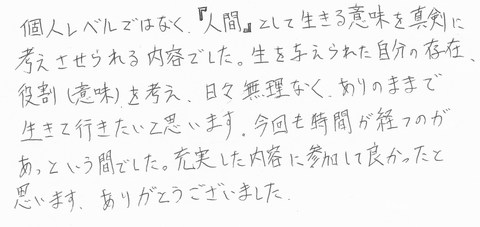 個人レベルではなく、『人間』として生きる意味を真剣に
考えさせられる内容でした。生を与えられた自分の存在、
役割(意味)を考え、日々無理なく、ありのままで
生きて行きたいと思います。今回も時間が経つのが
あっという間でした。充実した内容に参加して良かったと
思います、ありがとうございました。